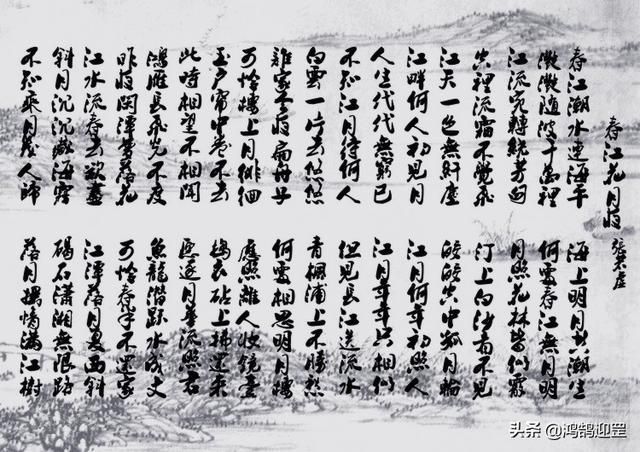 春江花月夜 張若虛
春江潮水連海平 海上明月共潮生
灩灩隨波千萬裡 何處春江無月明
江流宛轉繞芳甸 月照花林皆似霰
空裡流霜不覺飛 汀上白沙看不見
江天一色無纖塵 皎皎空中孤月輪
江畔何人初見月 江月何年初照人
人生代代無窮已 江月年年只相似
不知江月待何人 但見長江送流水
白雲一片去悠悠 青楓浦上不勝愁
誰家今夜扁舟子 何處相思明月樓
可憐樓上月徘徊 應照離人妝鏡臺
玉戶簾中卷不去 搗衣砧上拂還來
此時相望不相聞 願逐月華流照君
鴻雁長飛光不度 魚龍潛躍水成文
昨夜閑潭夢落花 可憐春半不還家
江水流春去欲盡 江潭落月復西斜
斜月沉沉藏海霧 碣石瀟湘無限路
不知乘月幾人歸 落月搖情滿江樹
头条 @鸿鹄迎罡